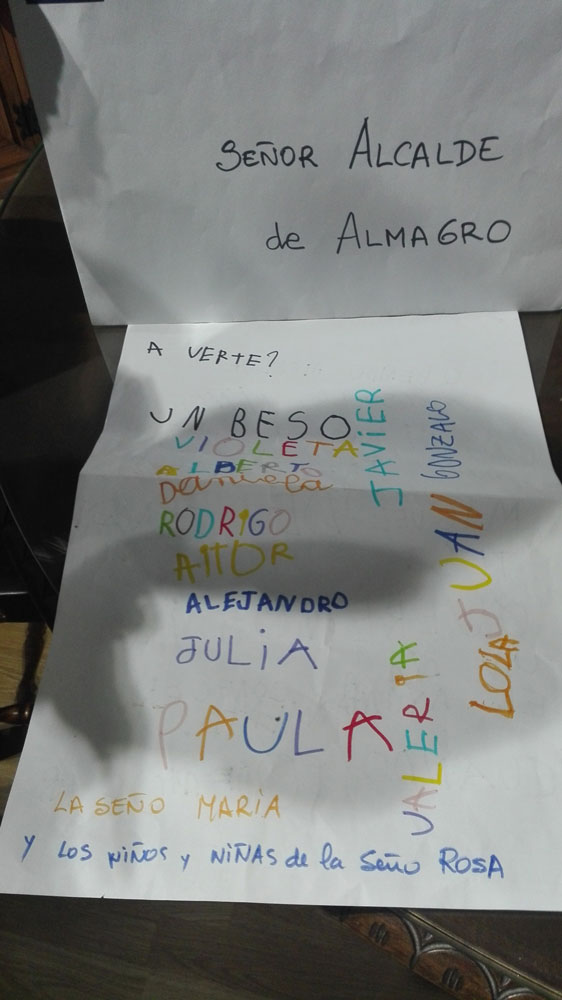 SEÑOR ALCALDE
de ALMAGRO
A VERTE?
UN BESO
VIOLETA
ALBERTO
Daniela
RODRIGO
AITOR
ALEJANDRO
JULIA
PAULA
JAVIER
GONZALO
JUAN
LOLA
VALERIA
LA SEÑO MARIA
Y LOS NIÑOS y NIÑAS de la Seño ROSA